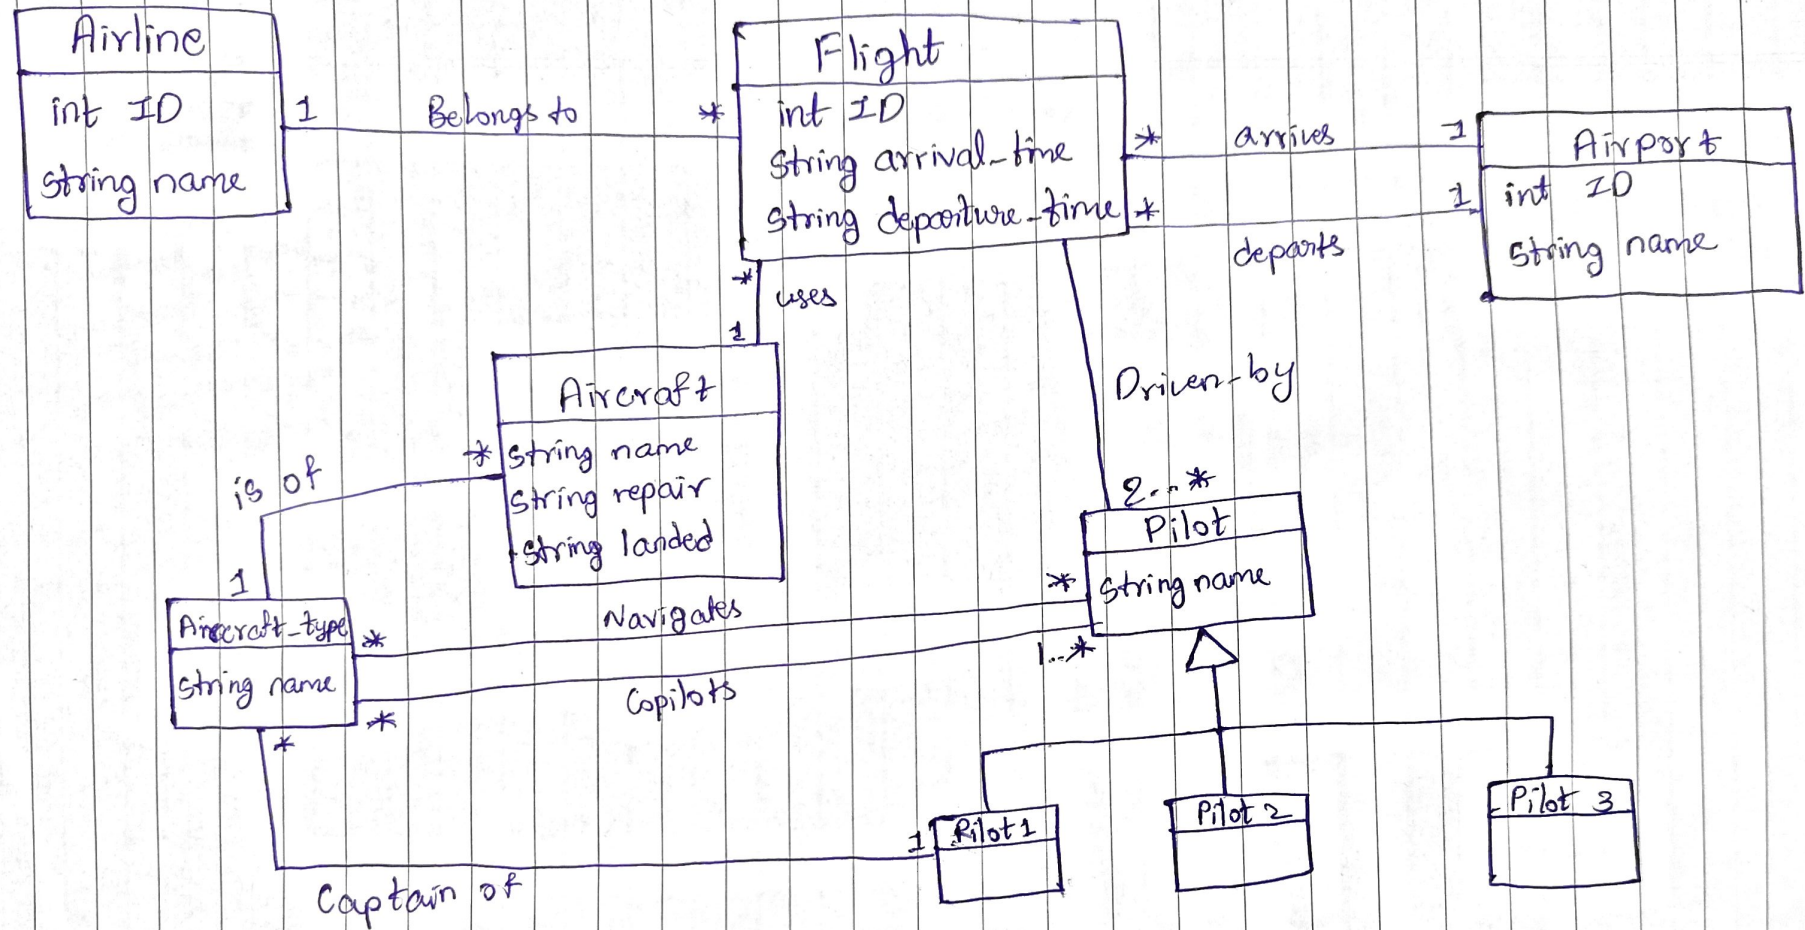 Airline
int ID
string name
1
Belongs to
*
Flight
int ID
String arrival-time
String departure-time
*
arrives
1
*
departs
1
Airport
int ID
String name
*
uses
1
Aircraft
String name
String repair
String landed
Driven-by
2...*
Pilot
String name
is of
*
1
Aircraft-type
String name
*
Navigates
*
*
Copilots
1..*
*
Captain of
1
Pilot 1
Pilot 2
Pilot 3